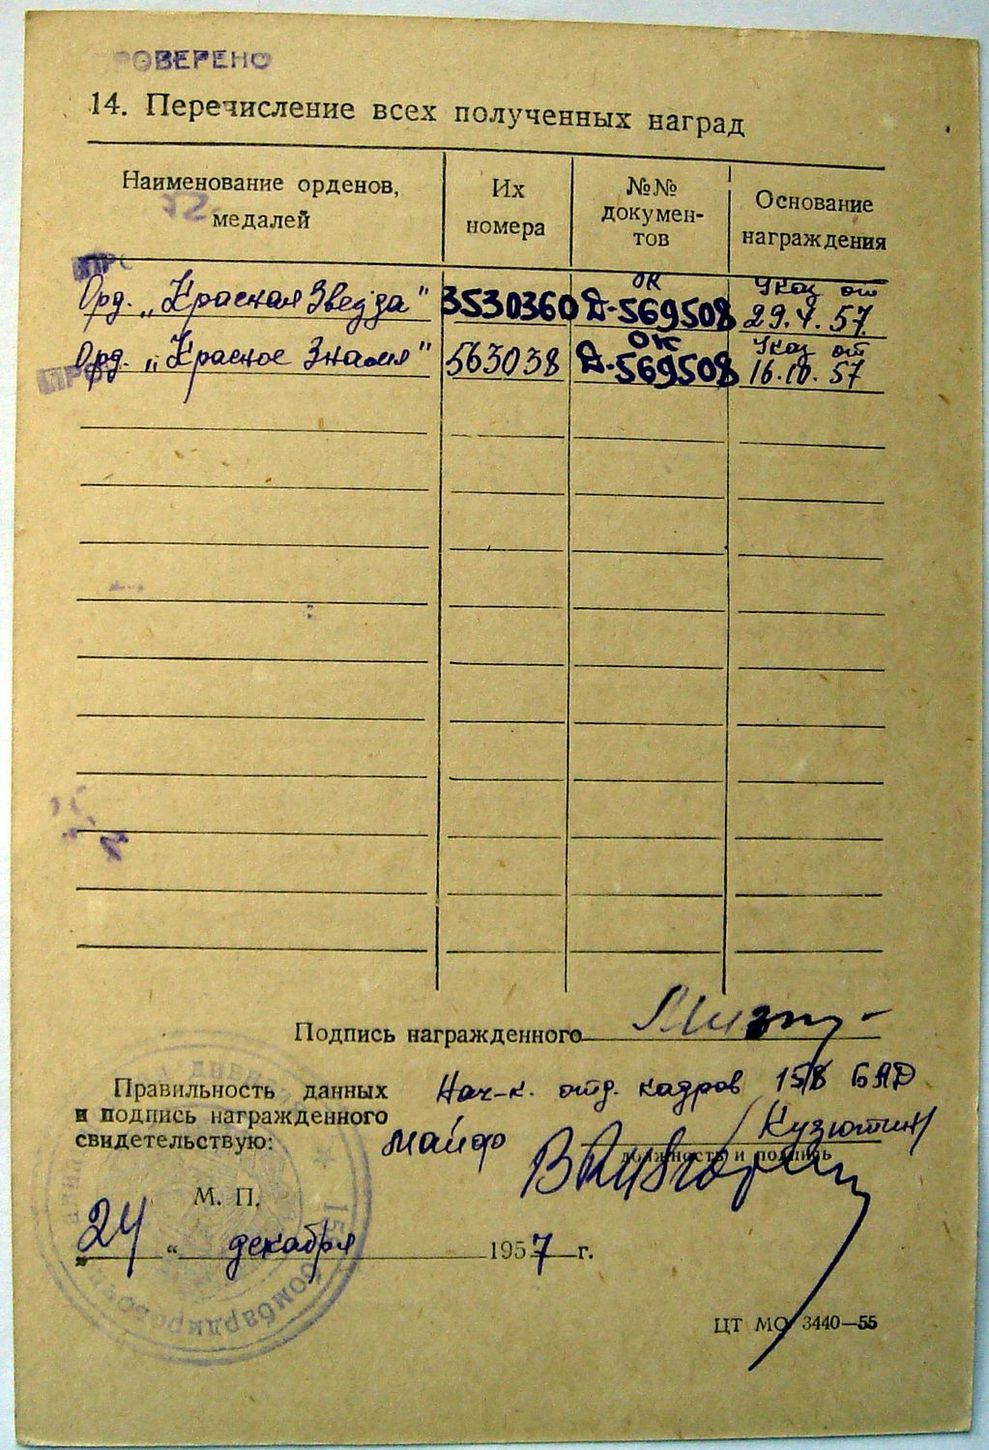 ПРОВЕРЕНО
14. Перечисление всех полученных наград
Наименование орденов,
медалей
Их
номера
№№
докумен-
тов
Основание
награждения
Орд. „Красная Звезда" 3530360 ОК Д-569508 Указ от 29.4.57
Орд. „Красное Знамя" 563038 ОК Д-569508 Указ от 16.10.57
Подпись награжденного
Правильность данных
и подпись награжденного
свидетельствую:
Нач-к. отд. кадров 158 БАД
майор /Кузютин/
должность и подпись
М. П.
„24" декабря 1957 г.
ЦТ МО 3440—55